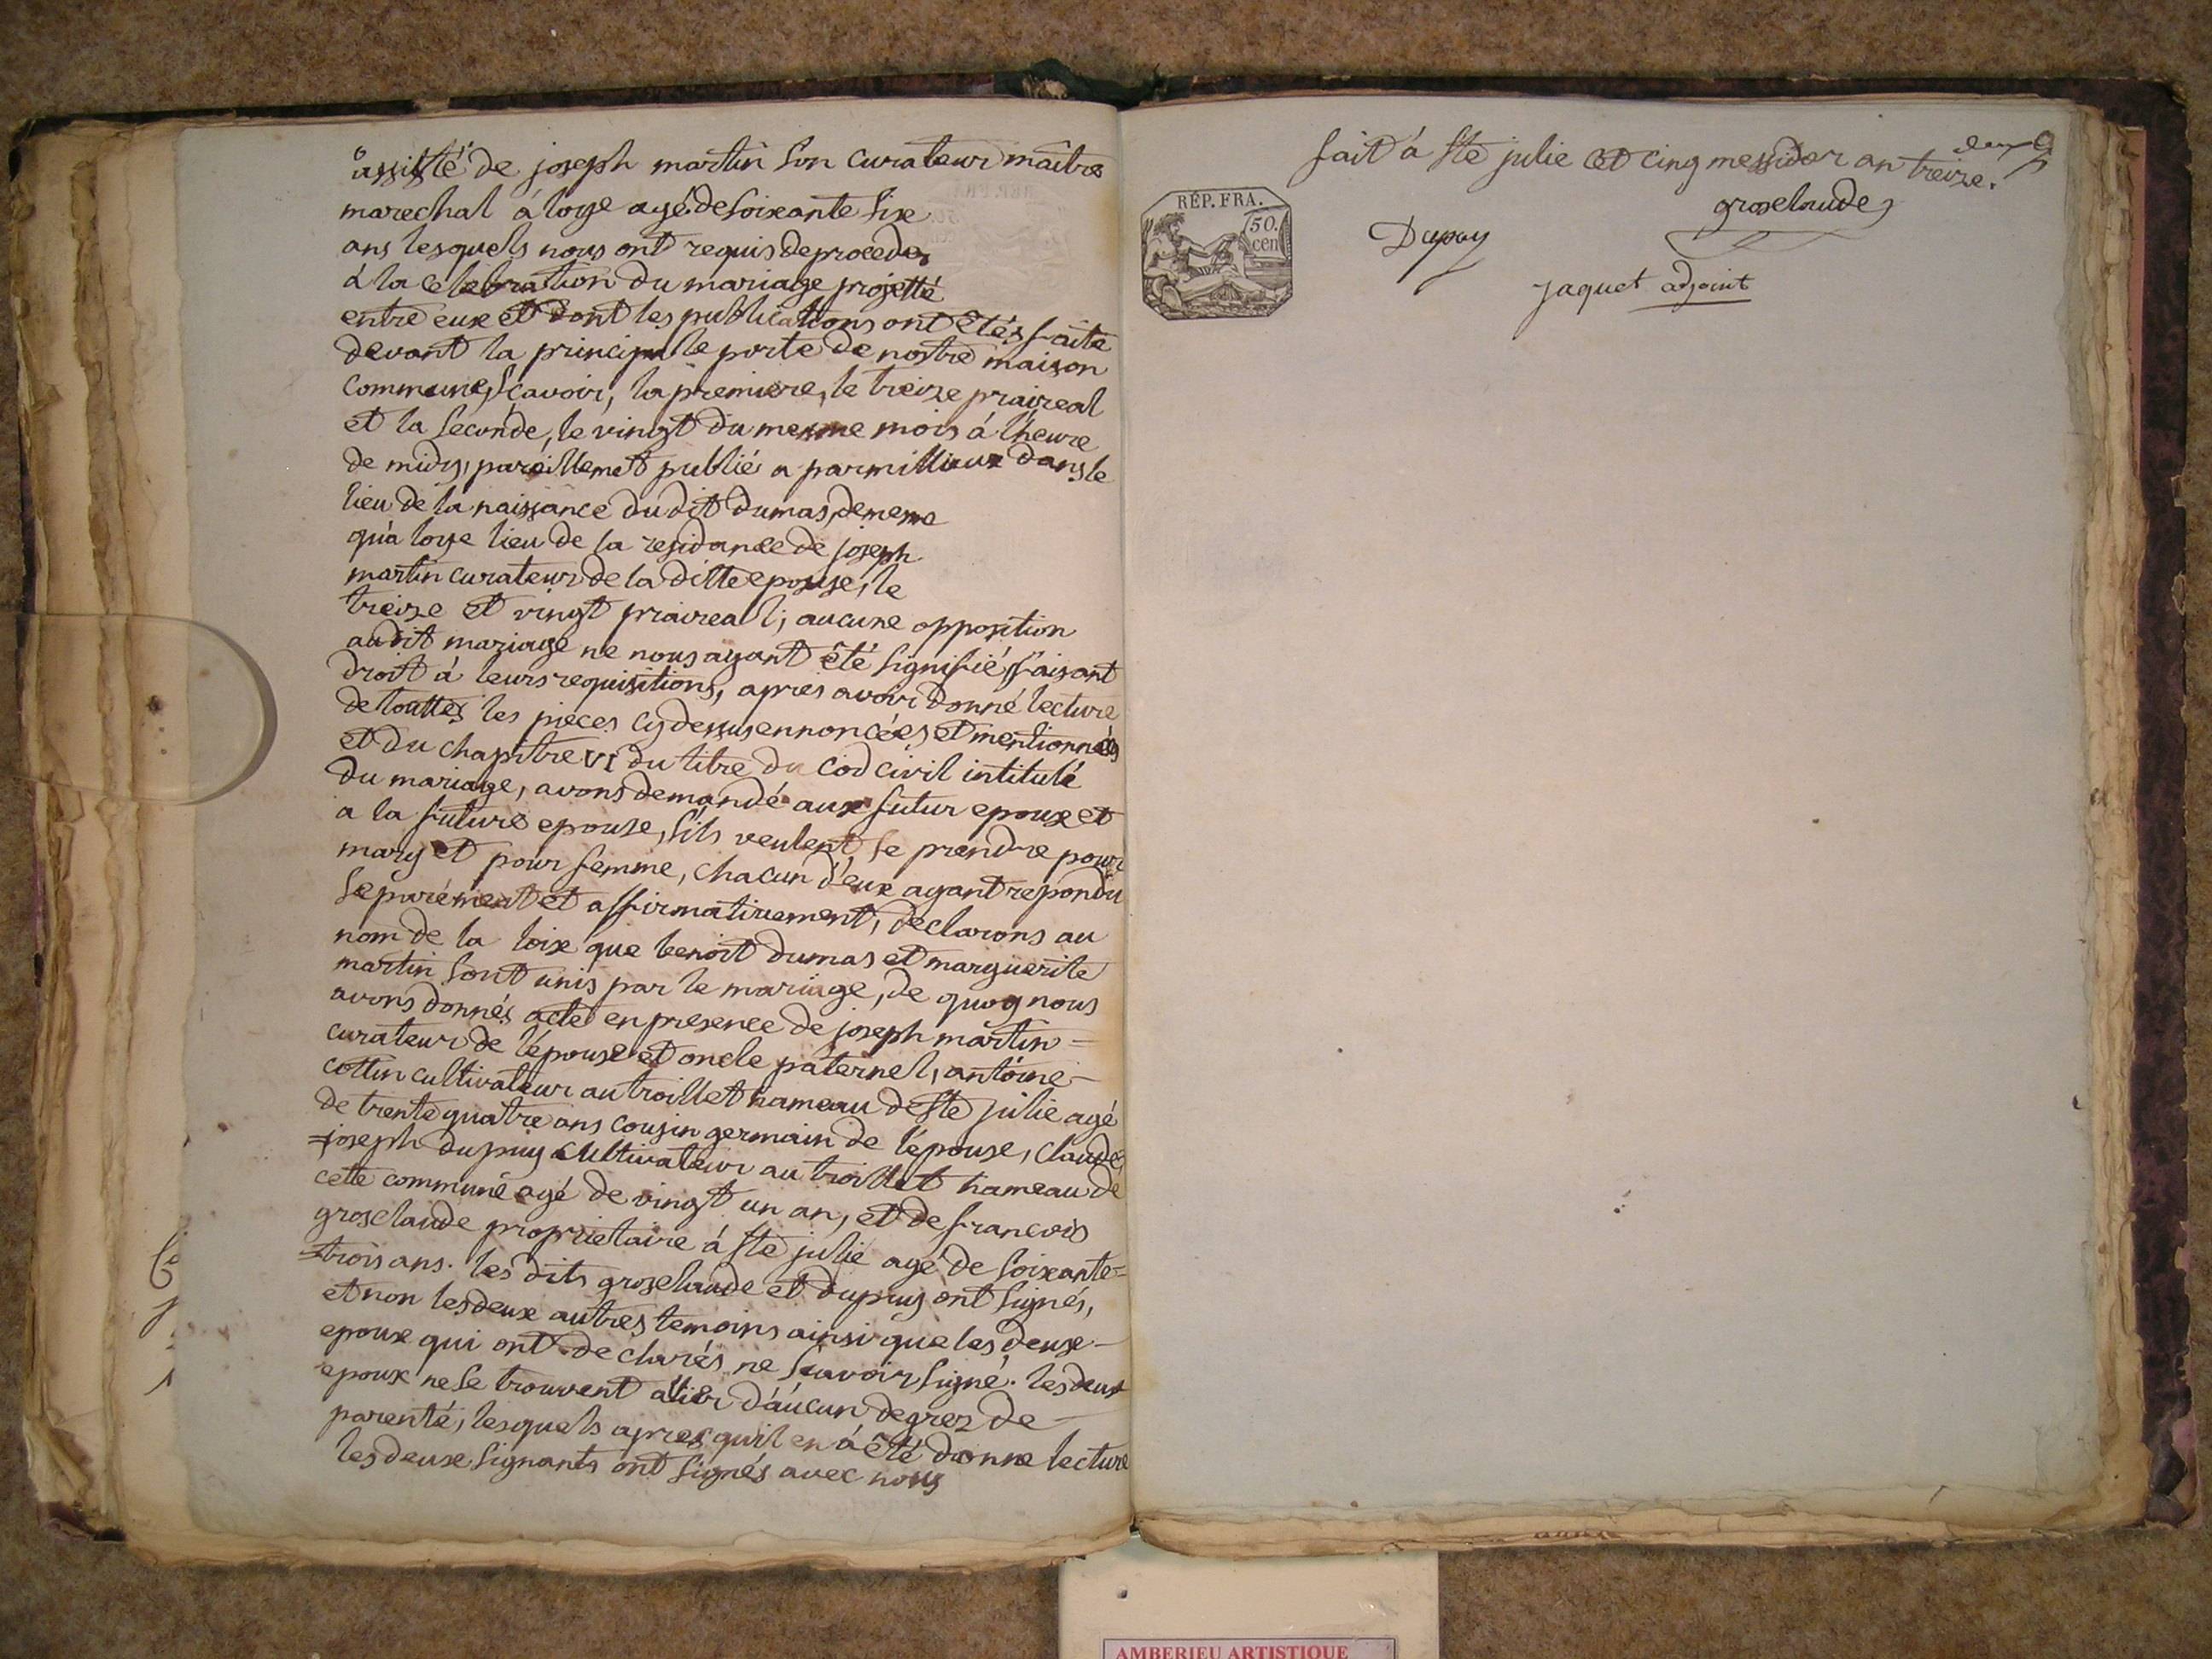 assisté de joseph martin son curateur maître
marechal á loye agé de soixante six
ans lesquels nous ont requis de proceder
á la celebration du mariage projetté
entre eux et dont les publications ont êtés faite
devant la principale porte de nostre maison
commune, sçavoir, la premiere, le treize praireal
et la seconde, le vingt du mesme mois á l'heure
de midy, pareillemet publiés a parmillieux dans le
lieu de la naissance du dit dumas, de meme
qu'a loye lieu de la residance de joseph
martin curateur de la ditte epouse, le
treize et vingt praireal; aucune opposition
au dit mariage ne nous ayant êté signifié, faisant
droit á leurs requisitions, apres avoir donné lecture
de touttes les pieces cy dessus ennoncées et mentionnées
et du chapitre VI du titre du cod civil intitulé
du mariage, avons demandé aux futur epoux et
a la future epouse, s'ils veulent se prendre pour
mary et pour femme, chacun d'eux ayant repondu
separément et affirmativement, declarons au
nom de la loix que benoit dumas et marguerite
martin sont unis par le mariage, de quoy nous
avons donnés acte en presence de joseph martin =
curateur de l'épouse et oncle paternel, antoine -
cottin cultivateur au troillet hameau de ste julie agé
de trente quatre ans cousin germain de l'épouse, claude
=joseph dupuy cultivateur au troillet hameau de
cette commune agé de vingt un an, et de francois
groselaude proprietaire á ste julie agé de soixante=
=trois ans. les dits groselaude et dupuy ont signés,
et non les deux autres temoins ainsi que les deux -
epoux qui ont declarés ne sçavoir signé. les deux
epoux ne se trouvent d'aucun degrez de -
parenté, lesquels apres qu'il en á êté donne lecture
les deux signants ont signés avec nous
fait á ste julie cet cinq messidor an treize.
RÉP. FRA.
50.
cen
groselaude
Dupuy
jaquet adjoint
AMBERIEU ARTISTIQUE